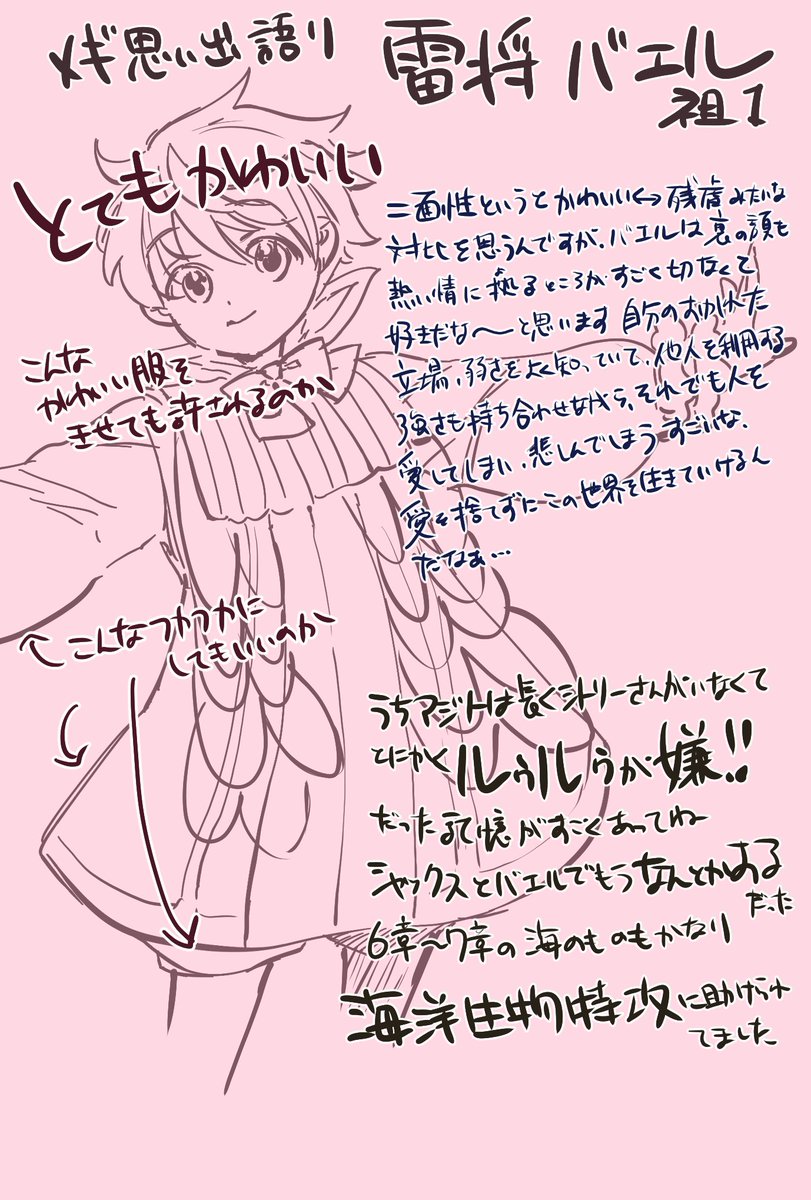 メギ思い出語り
雷将 バエル
祖1
とてもかわいい
二面性というとかわいい↔残虐みたいな
対比を思うんですが、バエルは裏の顔も
熱い情に拠るところがすごく切なくて
好きだな〜と思います 自分のおかれた
立場、弱さをよく知っていて、他人を利用する
強さも持ち合わせながら、それでも人を
愛してしまい、悲しんでしまうすごいな、
愛を捨てずにこの世界を生きていけるん
だなぁ…
こんな
かわいい服を
きせても許されるのか
←こんなつかつかに
してもいいのか
うちアジトは長くシトリーさんがいなくて
とにかくルゥルゥが嫌!!
だった記憶がすごくあってね
シャックスとバエルでもうなんとかある
だった
6章〜7章の海のものもかなり
海洋生物特攻に助けられ
てました